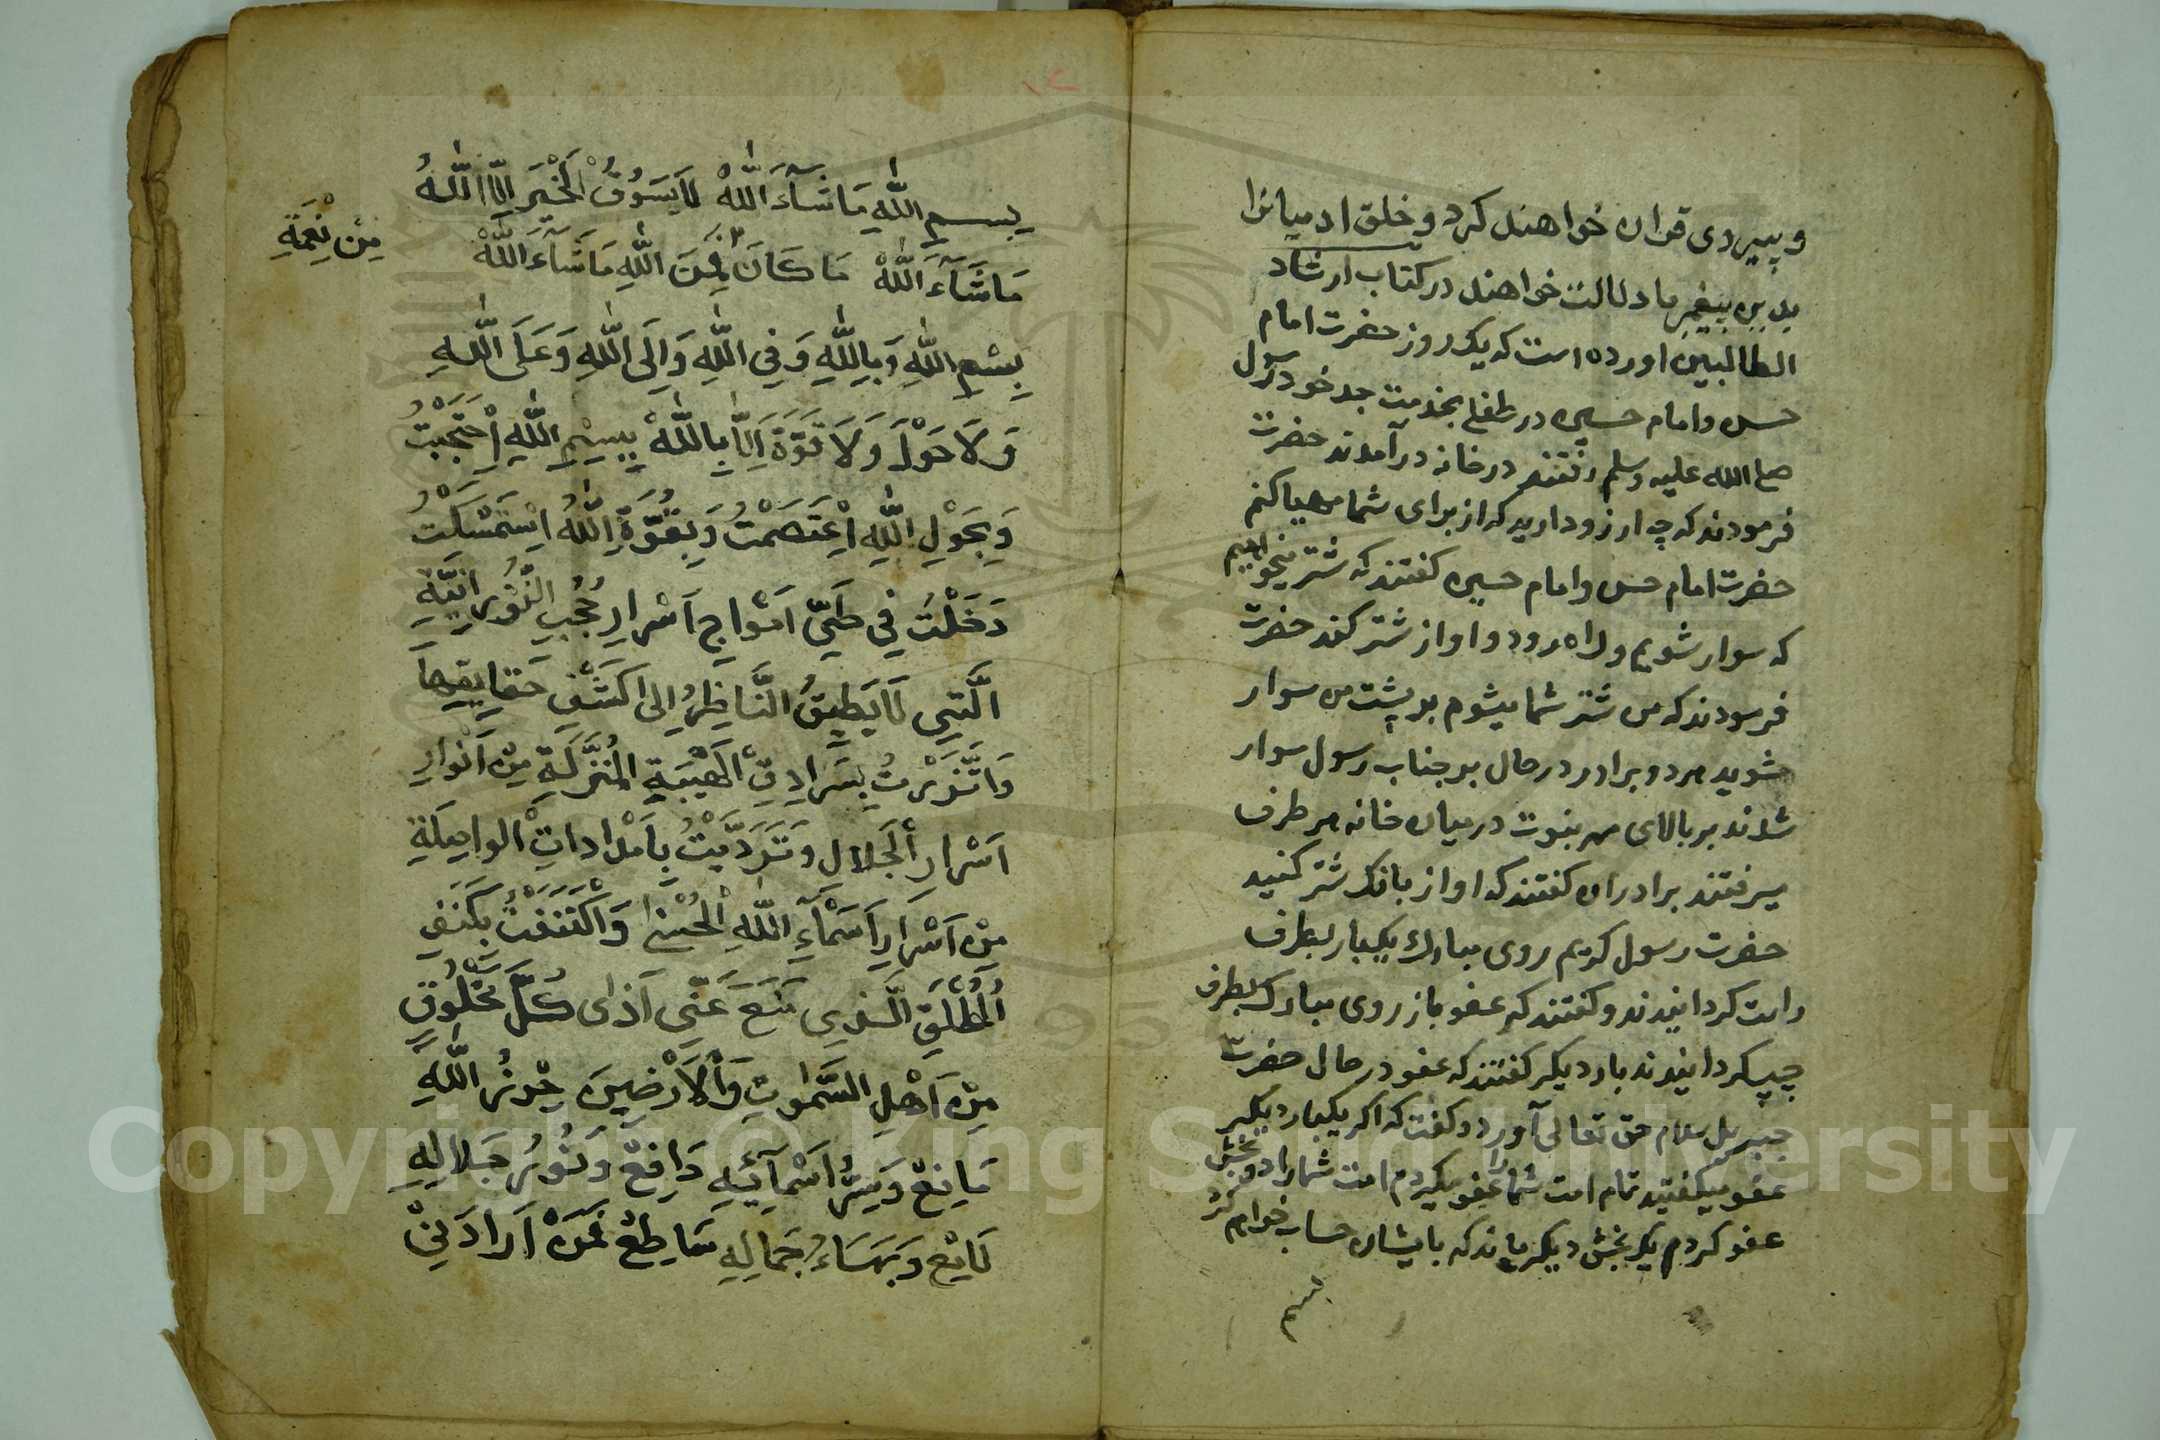 و پیروی قران خواهند کرد و خلق ادمیانرا
بدین پیغمبر ما دلالت خواهند در کتاب ارشاد
الطالبین اورده است که یک روز حضرت امام
حسن وامام حسین در طفلی بخدمت جد خود رسول
صلی الله علیه وسلم رفتند در خانه درآمدند حضرت
فرمودند که چه ارزو دارید که از برای شما مهیا کنم
حضرت امام حسن وامام حسین کفتند که شتر میخواهیم
که سوار شویم و راه رود و اواز شتر کند حضرت
فرمودند که من شتر شما میشوم بر پشت من سوار
شوید هر دو برادر در حال بر جناب رسول سوار
شدند بر بالای مهر نبوت در میان خانه هر طرف
میرفتند برادران کفتند که اواز بانک شتر کنید
حضرت رسول کریم روی مبارک یکبار بطرف
راست کردانیدند و کفتند که عفو باز روی مبارک بطرف
چپ کردانیدند بار دیکر کفتند که عفو در حال حضرت
جبریل سلام حق تعالی آورد و کفت که اکر یکبار دیکر
عفو میکفتید تمام امت شما را عفو میکردم امت شما را دو بخش
عفو کردم یک بخش دیکر ماند که بایشان حساب خواهم کرد
بسم
بِسمِ اللّٰهِ مَا شَآءَ اللّٰهُ لَا يَسُوقُ الْخَيْرَ اِلَّا اللّٰهُ
مَا شَآءَ اللّٰهُ مَا كَانَ فَمِنَ اللّٰهِ مَا شَآءَ اللّٰهُ
مِنْ نِعْمَةٍ
بِسْمِ اللّٰهِ وَبِاللّٰهِ وَفِي اللّٰهِ وَاِلَى اللّٰهِ وَعَلَى اللّٰهِ
وَلَا حَوْلَ وَلَا قُوَّةَ اِلَّا بِاللّٰهِ بِبِسْمِ اللّٰهِ اِحْتَجَبْتُ
وَبِحَوْلِ اللّٰهِ اِعْتَصَمْتُ وَبِقُوَّةِ اللّٰهِ اِسْتَمْسَكْتُ
دَخَلْتُ فِي طَيِّ اَمْوَاجِ اَسْرَارِ حُجُبِ النُّورَانِيَّةِ
الَّتِي لَا يَطِيقُ النَّاظِرُ اِلى كَشْفِ حَقَايِقِهَا
وَاتَّزَرْتُ بِسَرَادِقِ الْهَيْبَةِ الْمُنَزَّلَةِ مِنْ اَنْوَارِ
اَسْرَارِ الْجَلَالِ وَتَرَدَّيْتُ بِاَمْدَادَاتِ الْوَاصِلَةِ
مِنْ اَسْرَارِ اَسْمَآءِ اللّٰهِ الْحُسْنَا وَاكْتَنَفْتُ بِكَنَفِ
الْمُطْلَقِ الَّذِي مَنَعَ عَنِّي اَذٰى كُلِّ مَخْلُوقٍ
مِنْ اَهْلِ السَّمٰوَاتِ وَالْاَرْضِينَ حِرْزُ اللّٰهِ
مَانِعٌ وَسِرُّ اَسْمَآئِهِ دَافِعٌ وَنُورُ جَلَالِهِ
لَامِعٌ وَبَهَاءُ جَمَالِهِ سَاطِعٌ مَنْ اَرَادَنِي
Copyright © King Saud University